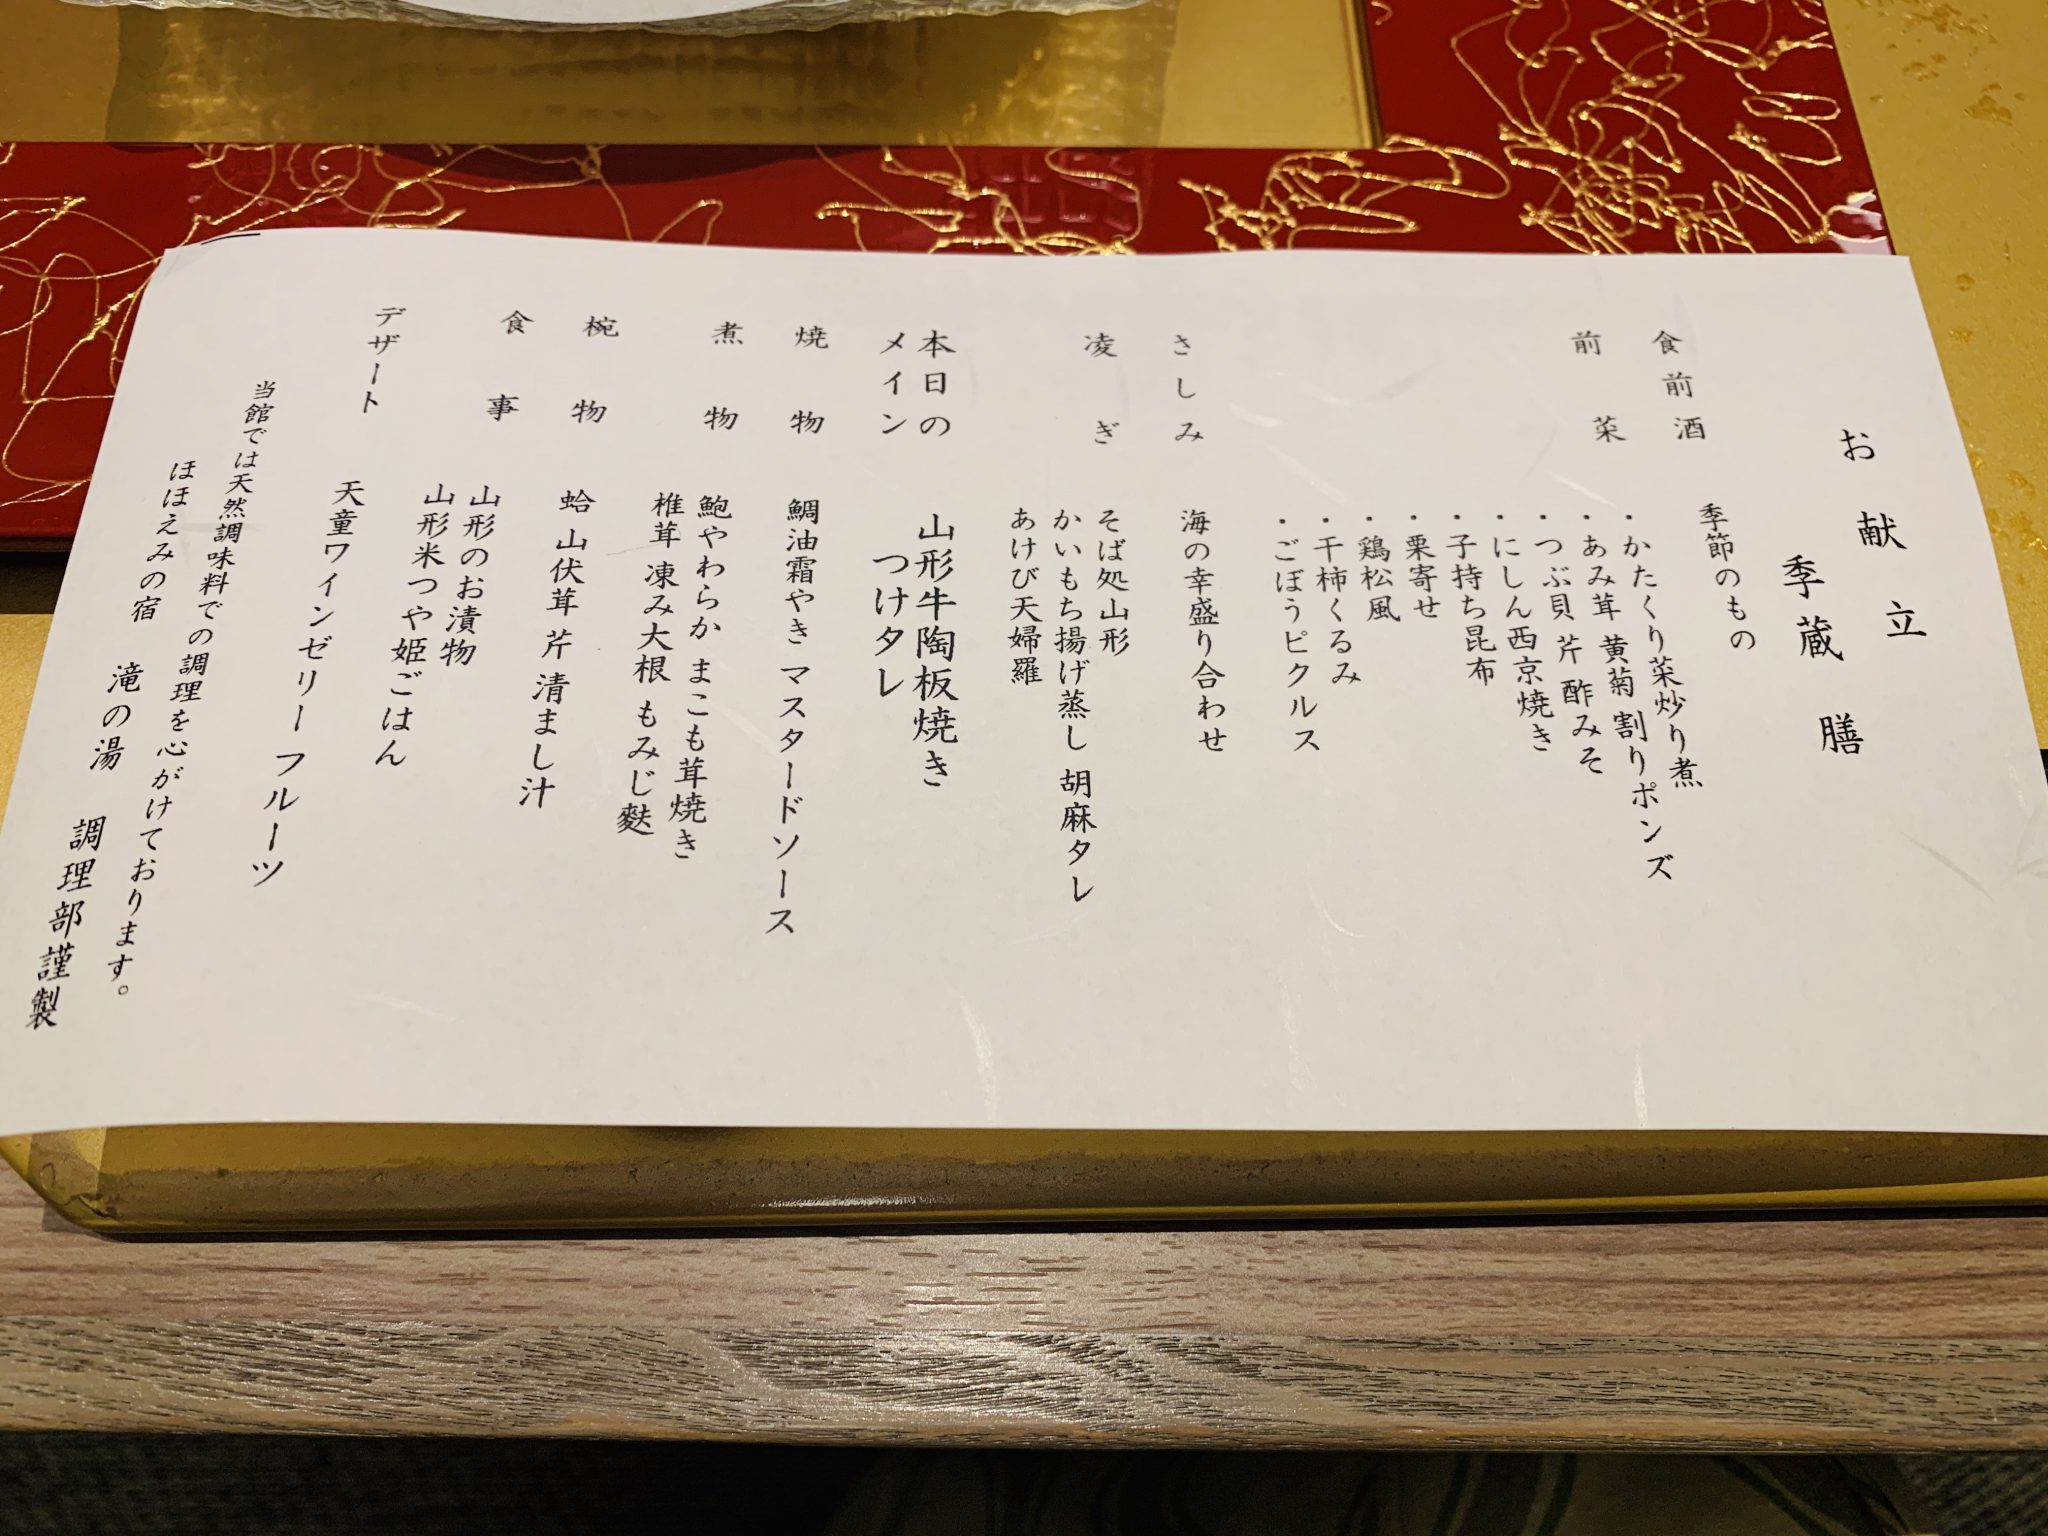 お献立
季蔵膳
食前酒 季節のもの
前菜 ・かたくり菜炒り煮
・あみ茸 黄菊 割りポンズ
・つぶ貝 芹 酢みそ
・にしん西京焼き
・子持ち昆布
・栗寄せ
・鶏松風
・干柿くるみ
・ごぼうピクルス
さしみ 海の幸盛り合わせ
凌ぎ そば処山形
かいもち揚げ蒸し 胡麻タレ
あけび天婦羅
本日の
メイン 山形牛陶板焼き
つけタレ
焼物 鯛油霜やき マスタードソース
煮物 鮑やわらか まこも茸焼き
椎茸 凍み大根 もみじ麩
椀物 蛤 山伏茸 芹 清まし汁
食事 山形のお漬物
山形米つや姫ごはん
デザート 天童ワインゼリー フルーツ
当館では天然調味料での調理を心がけております。
ほほえみの宿 滝の湯 調理部謹製